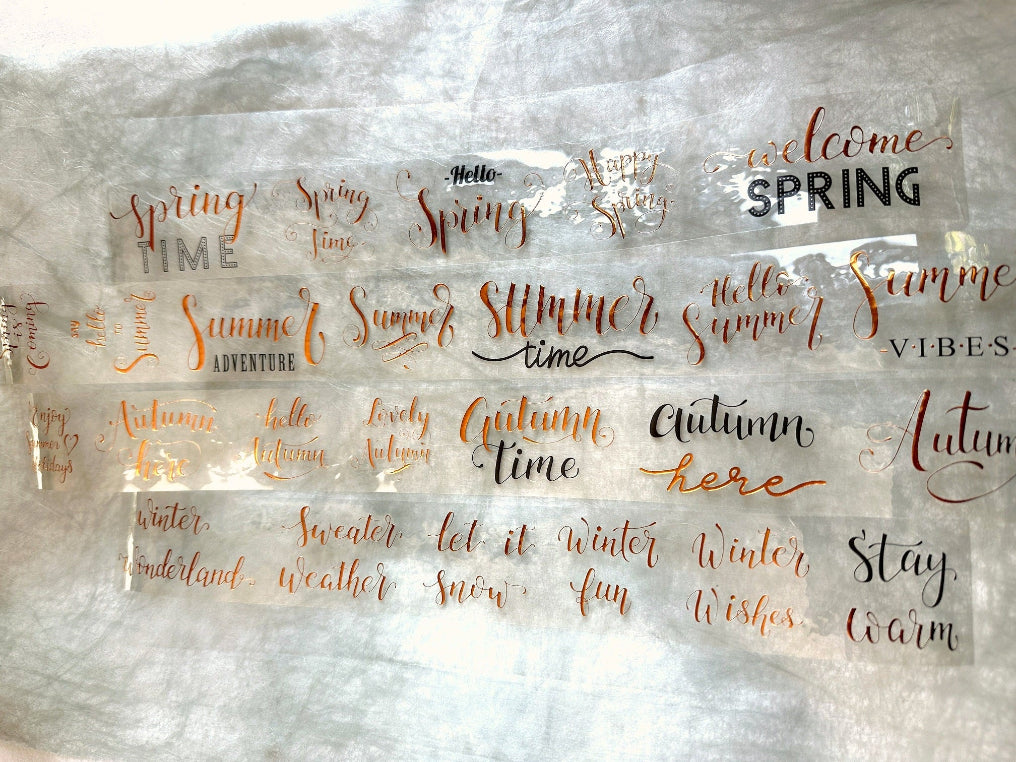 spring
TIME
Spring
Time
-Hello-
Spring
Happy
Spring
welcome
SPRING
is
Coming
say
hello
to
Summer
Summer
ADVENTURE
Summer
SUMMER
time
Hello
Summer
Summe
-V·I·B·E·S-
Enjoy
Autumn
here
hello
Autumn
Lovely
Autumn
Autumn
time
Autumn
here
Autum
Winter
Wonderland
Sweater
Weather
let it
snow
Winter
fun
Winter
Wishes
Stay
warm